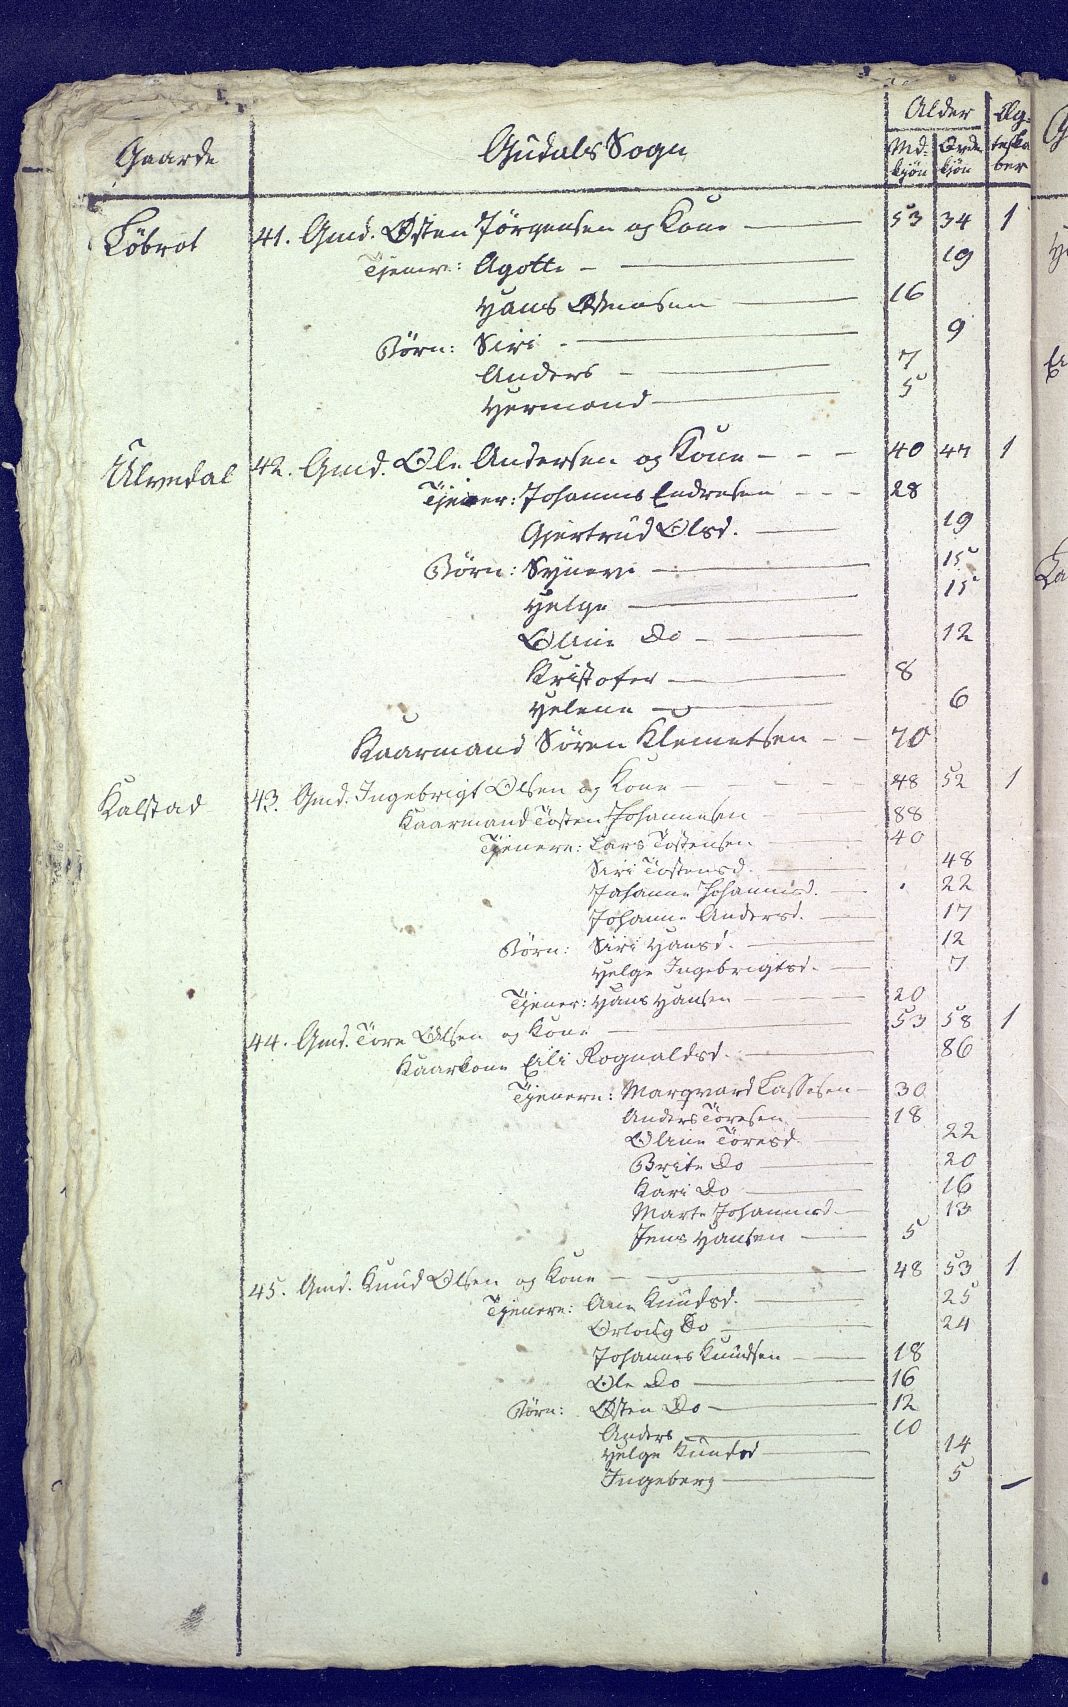 Gaarde Gudals Sogn Alder Æg-
Md- Qvde teska
kjön kjön ber
Löbrot 41. Gmd. Østen Jörgensen og Kone 53 34 1
Tjenere: Agotte 19
Hans Østensen 16
Börn: Siri 9
Anders 7
Hermond 5
Ulvedal 42. Gmd. Ole Andersen og Kone 40 47 1
Tjener: Johannes Endresen 28
Gjertrud Olsd. 19
Börn: Syneve 15
Helge 15
Oline Do 12
Kristofer 8
Helene 6
Kaarmand Sören Klemetsen 70
Kalstad 43. Gmd. Ingebrigt Olsen og Kone 48 52 1
Kaarmand Tosten Johannesen 88
Tjenere: Lars Tostensen 40
Siri Tostensd. 48
Johanne Johannesd. 22
Johanne Andersd. 17
Börn: Siri Hansd. 12
Helge Ingebrigtsd. 7
Tjener: Hans Hansen 20
44. Gmd. Tore Olsen og Kone 53 58 1
Kaarkone Eili Rognaldsd. 86
Tjenere: Marqvard Lassesen 30
Anders Töresen 18
Oline Töresd. 22
Brite Do 20
Kari Do 16
Marte Johannesd. 13
Jens Hansen 5
45. Gmd. Knud Olsen og Kone 48 53 1
Tjenere: Ane Knudsd. 25
Do 24
Johannes Knudsen 18
Ole Do 16
Börn: Østen Do 12
Anders 10
Helge Knudsd 14
Ingeberg 5